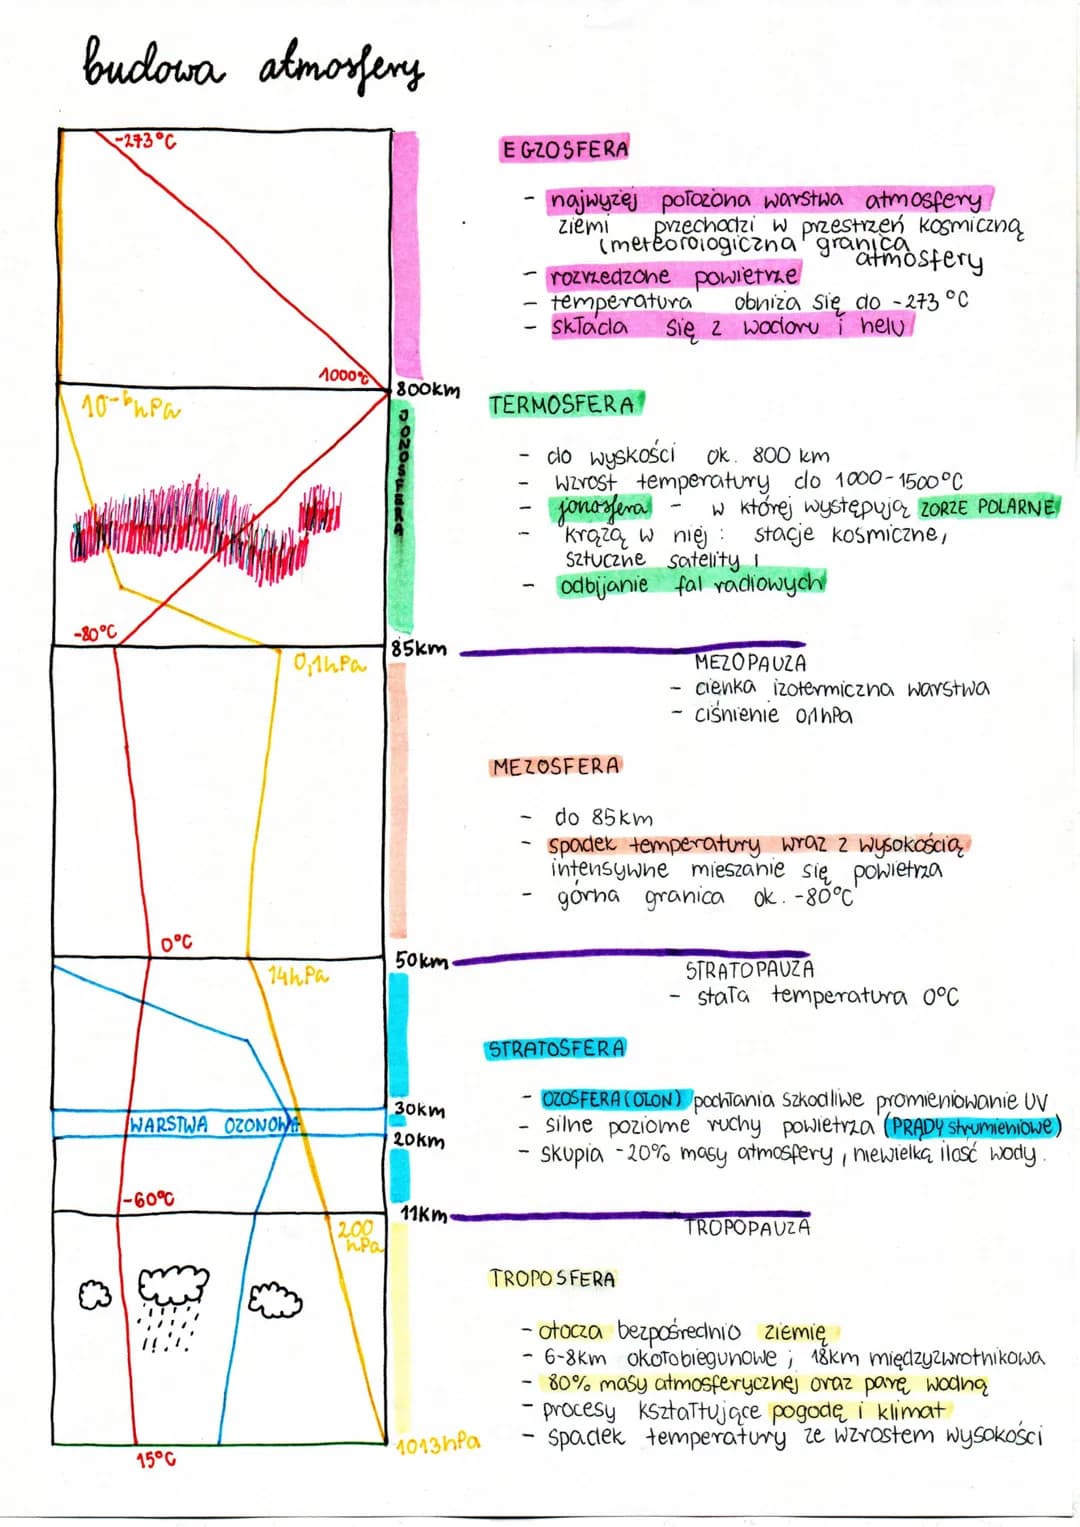 budowa atmosfery
-273°C
1000°C
800km
10-6hPa
JONOSFERA
-80°C
85km
0,1hPa
0°C
50km
14hPa
30km
WARSTWA OZONOWA
20km
-60°C
11km
200
hPa
1013hPa
15°C
EGZOSFERA
- najwyżej położona warstwa atmosfery
ziemi przechodzi w przestrzeń kosmiczną
(meteorologiczna granica
atmosfery
- rozrzedzone powietrze
- temperatura obniża się do -273°C
- składa się z wodoru i helu
TERMOSFERA
- do wyskości ok. 800 km
- wzrost temperatury do 1000-1500°C
- jonosfera - w której występują ZORZE POLARNE
- krążą w niej: stacje kosmiczne,
sztuczne satelity
- odbijanie fal radiowych
MEZOPAUZA
- cienka izotermiczna warstwa
- ciśnienie 0,1hPa
MEZOSFERA
- do 85km
- spadek temperatury wraz z wysokością
intensywne mieszanie się powietrza
- górna granica ok. -80°C
STRATOPAUZA
- stała temperatura 0°C
STRATOSFERA
- OZOSFERA (OZON) pochłania szkodliwe promieniowanie UV
- silne poziome ruchy powietrza (PRĄDY strumieniowe)
- skupia ~20% masy atmosfery, niewielką ilość wody.
TROPOPAUZA
TROPOSFERA
- otacza bezpośrednio ziemię
- 6-8km okołobiegunowe; 18km międzyzwrotnikowa
- 80% masy atmosferycznej oraz parę wodną
- procesy kształtujące pogodę i klimat
- spadek temperatury ze wzrostem wysokości